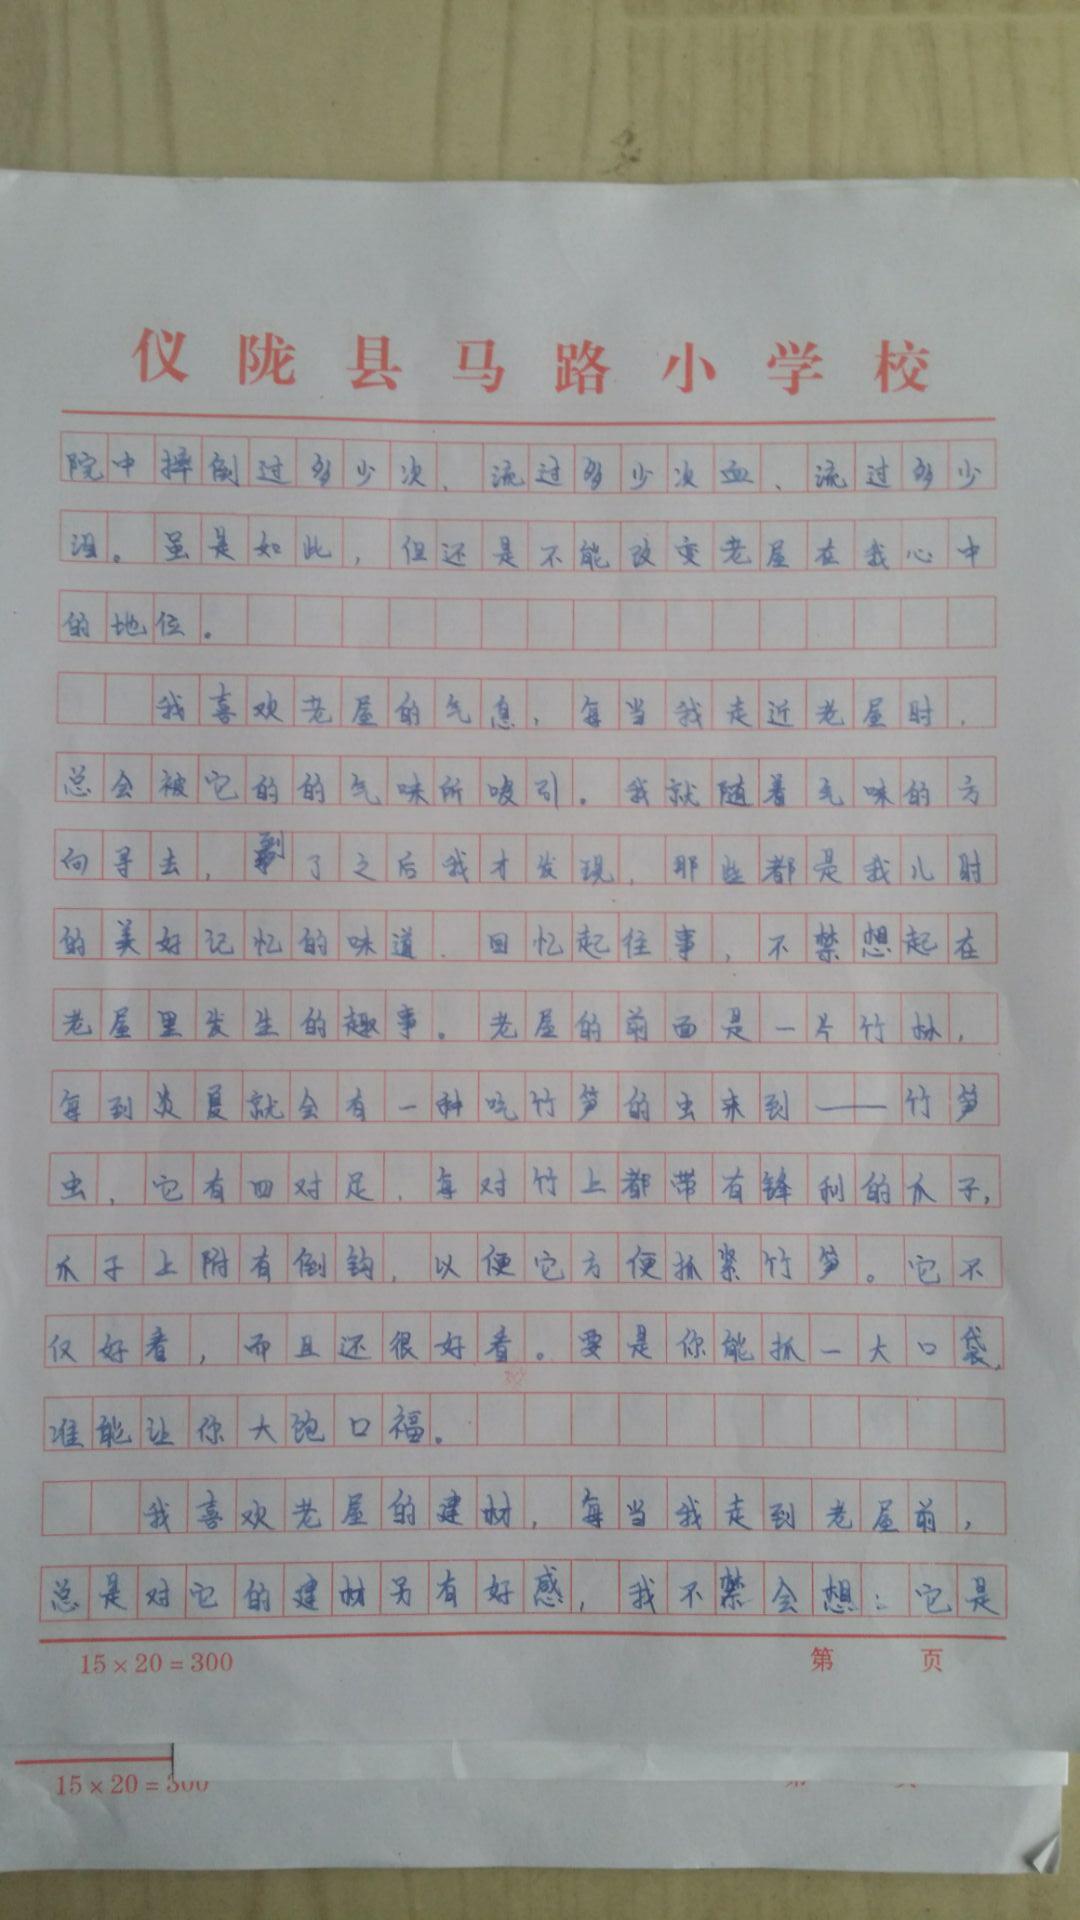 仪陇县马路小学校
院中摔倒过多少次、流过多少次血、流过多少
泪。虽是如此，但还是不能改变老屋在我心中
的地位。
我喜欢老屋的气息，每当我走近老屋时，
总会被它的的气味所吸引。我就随着气味的方
向寻去，到了之后我才发现，那些都是我儿时
的美好记忆的味道、回忆起往事，不禁想起在
老屋里发生的趣事。老屋的前面是一片竹林，
每到炎夏就会有一种吃竹笋的虫来到——竹笋
虫，它有四对足，每对竹上都带有锋利的爪子，
爪子上附有倒钩，以便它方便抓紧竹笋。它不
仅好看，而且还很好看。要是你能抓一大口袋，
准能让你大饱口福。
我喜欢老屋的建材，每当我走到老屋前，
总是对它的建材另有好感，我不禁会想：它是
15×20=300 第 页
15×20=300